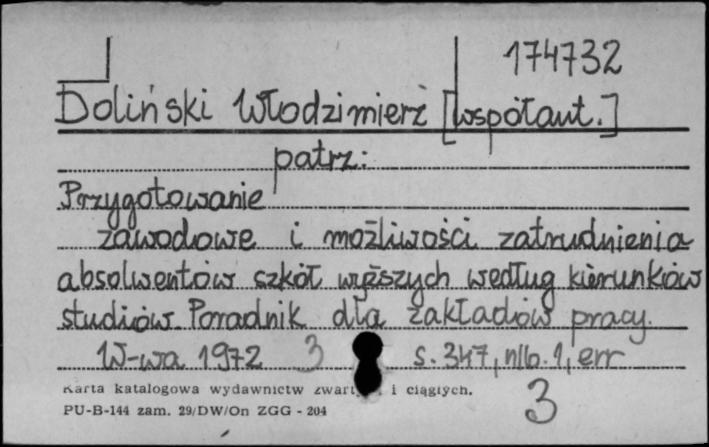 174732
Doliński Włodzimierz [współaut.]
patrz:
Przygotowanie
zawodowe i możliwości zatrudnienia
absolwentów szkół wyższych według kierunków
studiów. Poradnik dla zakładów pracy.
W-wa 1972 3 s. 347, nlb. 1, err
Karta katalogowa wydawnictw i ciągłych.
3
PU-B-144 zam. 29/DW/On ZGG - 204